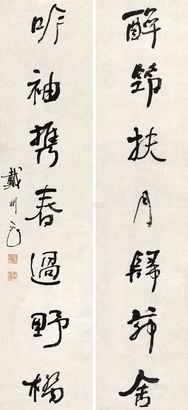 醉筇扶月歸舍
吟袖携春過野橋
戴